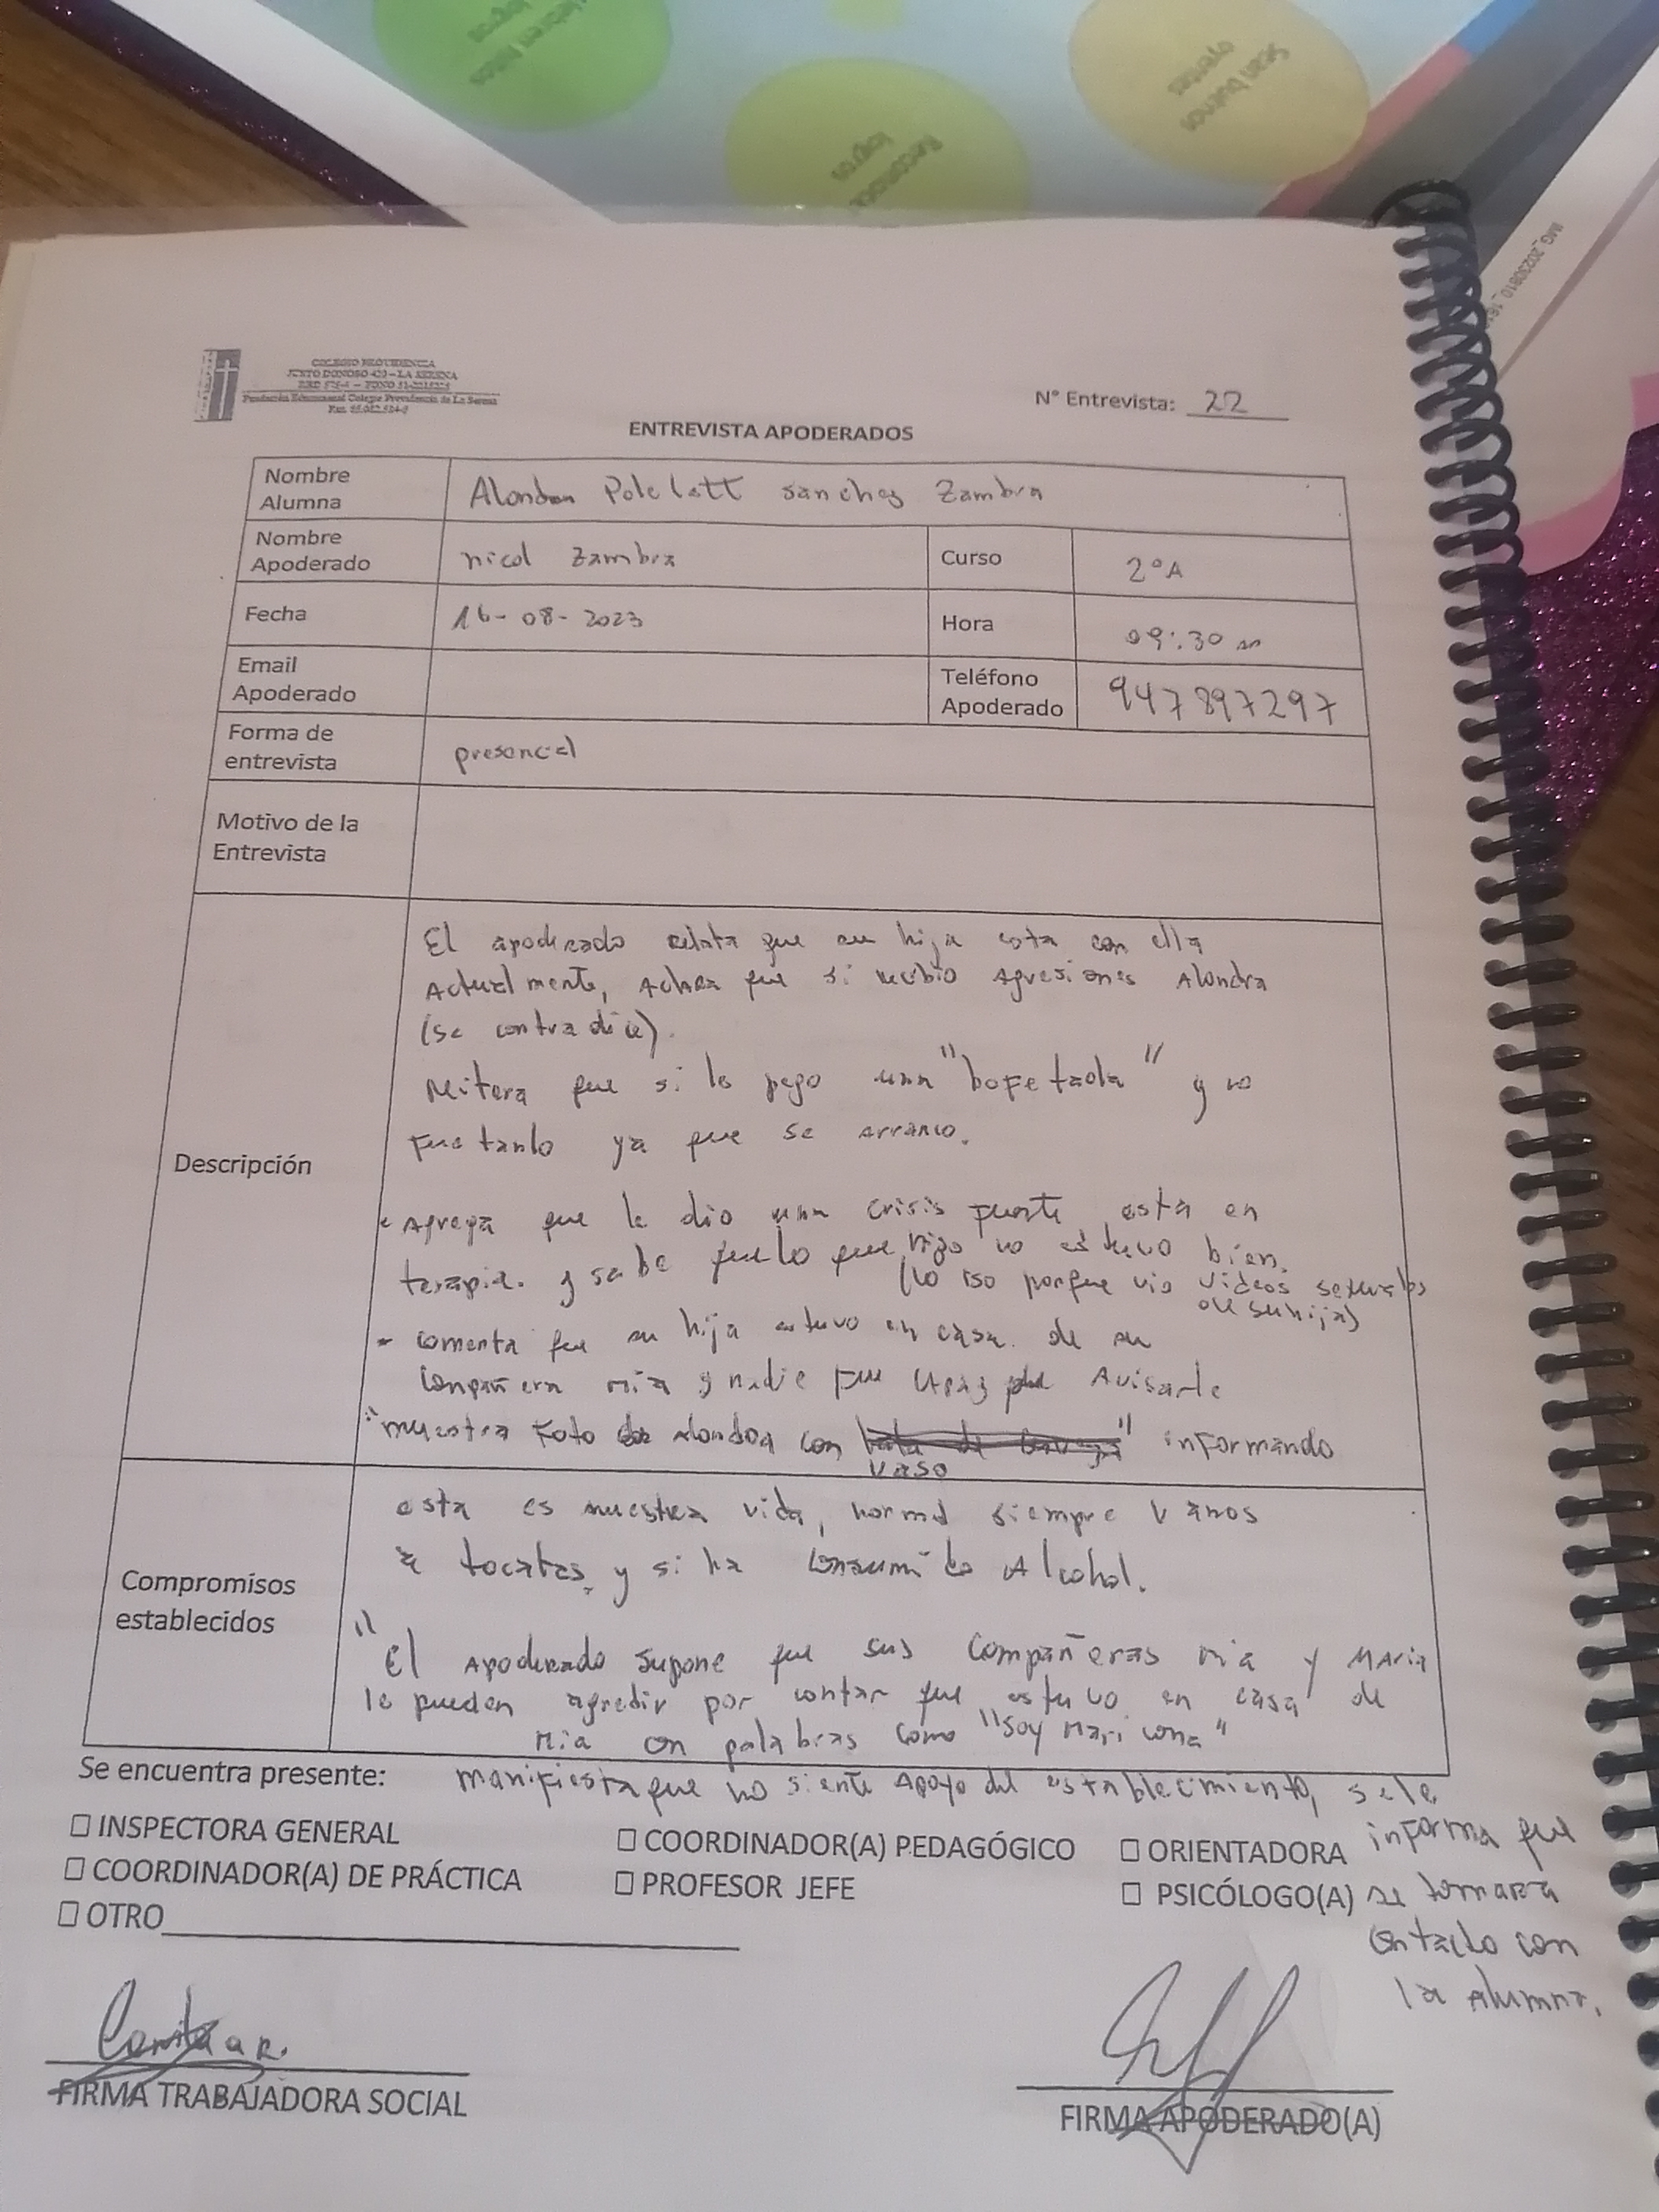 Sean buenos
oyentes
Reconocer
logros
IMG_20230810_161
COLEGIO PROVIDENCIA
JUSTO DONOSO 420 – LA SERENA
Fundación Educacional Colegio Providencia de La Serena
N° Entrevista: 22
ENTREVISTA APODERADOS
Nombre Alumna
Alondra Polelett Sanchez Zambra
Nombre Apoderado
nicol Zambra
Curso
2°A
Fecha
16-08-2023
Hora
09:30
Email Apoderado
Teléfono Apoderado
947897297
Forma de entrevista
presencial
Motivo de la Entrevista
Descripción
El apoderado relata que su hija esta con ella
Actualmente, Aclara que si recibio agresiones Alondra
(se contradice).
Reitera que si le pego una "bofetada" y no
fue tanto ya que se arranco.
- Agrega que le dio una crisis fuerte, esta en
terapia. y sabe que lo que hizo no estuvo bien.
(lo iso porque vio videos sexuales
de su hija)
- comenta que su hija estuvo en casa de su
compañera mia y nadie fue capaz de Avisarle
"muestra Foto de Alondra con vaso" informando
Compromisos establecidos
esta es nuestra vida, normal siempre vamos
a tocatas, y si ha consumido Alcohol.
"El Apoderado supone que sus compañeras Mia y Maria
le pueden agredir por contar que estuvo en casa de
Mia con palabras como "soy Maricona"
Se encuentra presente: manifiesta que no siente Apoyo del establecimiento, se le
informa que
se tomara
contacto con
la alumna.
☐ INSPECTORA GENERAL ☐ COORDINADOR(A) PEDAGÓGICO ☐ ORIENTADORA
☐ COORDINADOR(A) DE PRÁCTICA ☐ PROFESOR JEFE ☐ PSICÓLOGO(A)
☐ OTRO
FIRMA TRABAJADORA SOCIAL
FIRMA APODERADO(A)